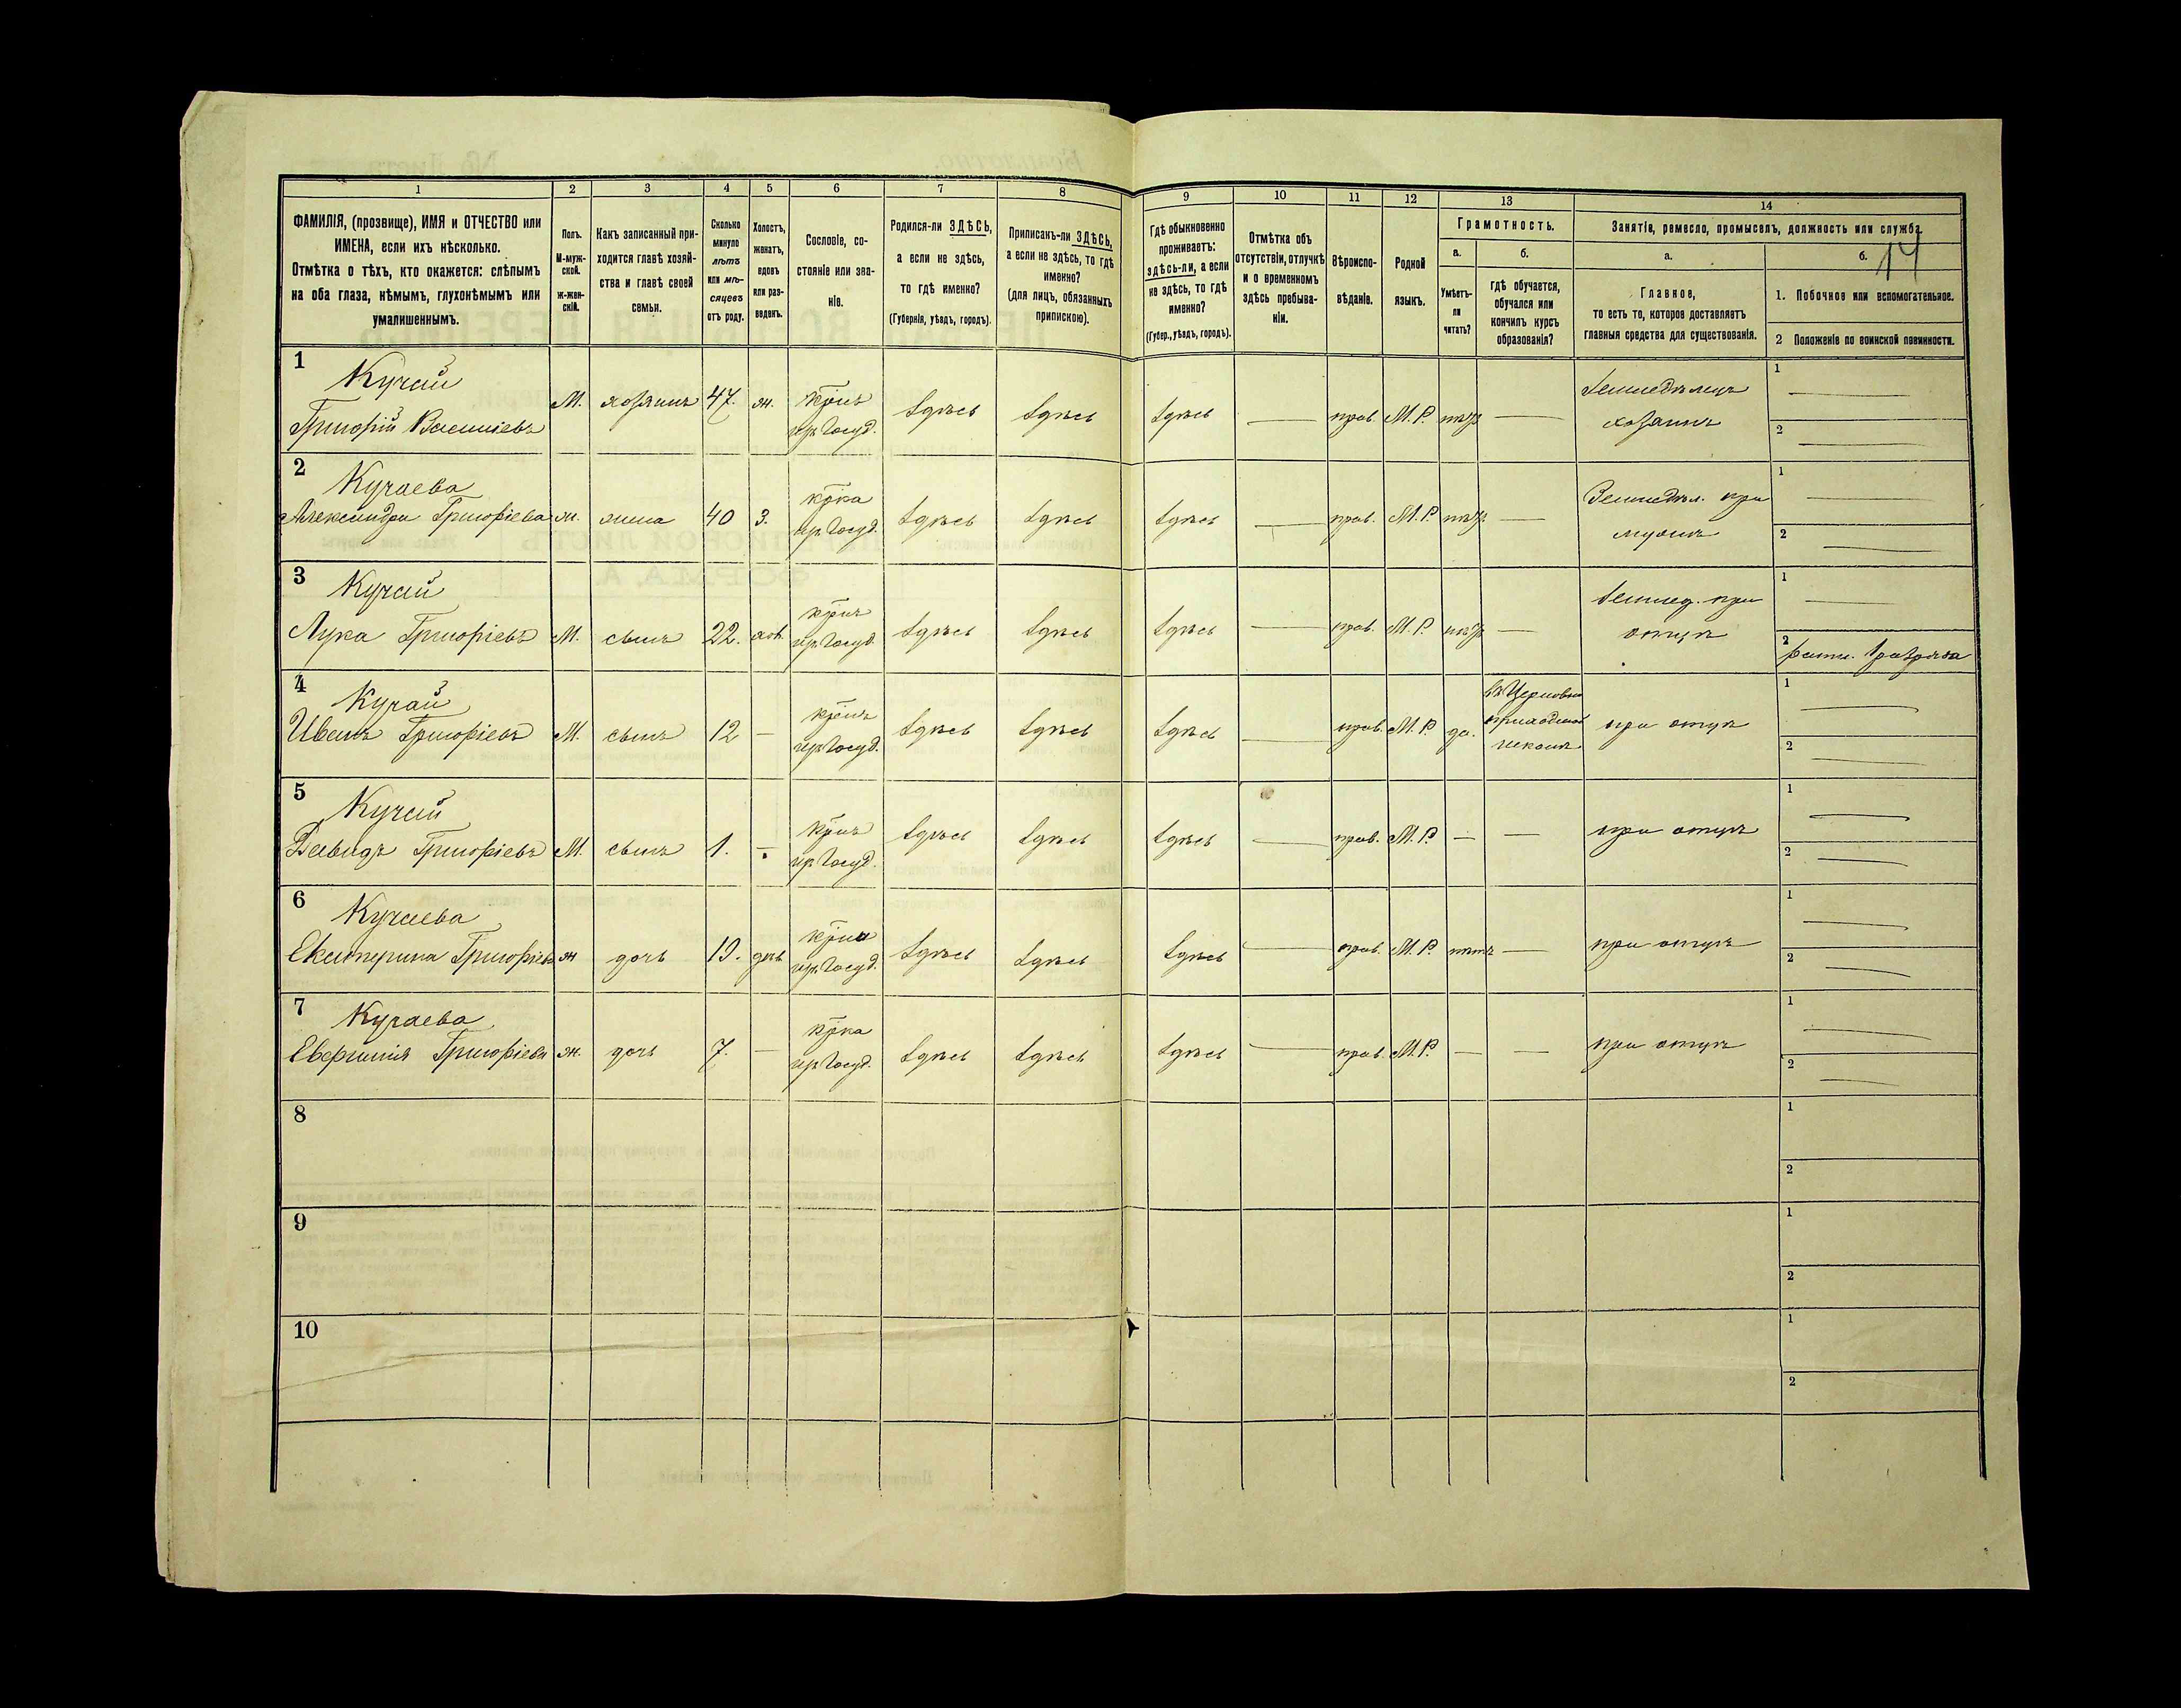 14
1
2
3
4
5
6
7
8
9
10
11
12
13
14
ФАМИЛІЯ, (прозвище), ИМЯ и ОТЧЕСТВО или
ИМЕНА, если ихъ нѣсколько.
Отмѣтка о тѣхъ, кто окажется: слѣпымъ
на оба глаза, нѣмымъ, глухонѣмымъ или
умалишеннымъ.
Полъ.
М-муж-
ской.
ж-жен-
скій.
Какъ записанный при-
ходится главѣ хозяй-
ства и главѣ своей
семьи.
Сколько
минуло
лѣтъ
или мѣ-
сяцевъ
отъ роду.
Холостъ,
женатъ,
вдовъ
или раз-
веденъ.
Сословіе, со-
стояніе или зва-
ніе.
Родился-ли ЗДѢСЬ,
а если не здѣсь,
то гдѣ именно?
(Губернія, уѣздъ, городъ).
Приписанъ-ли ЗДѢСЬ,
а если не здѣсь, то гдѣ
именно?
(для лицъ, обязанныхъ
припискою).
Гдѣ обыкновенно
проживаетъ:
здѣсь-ли, а если
не здѣсь, то гдѣ
именно?
(Губер., уѣздъ, городъ).
Отмѣтка объ
отсутствіи, отлучкѣ
и о временномъ
здѣсь пребыва-
ніи.
Вѣроиспо-
вѣданіе.
Родной
языкъ.
Грамотность.
а.
Умѣетъ-
ли
читать?
б.
гдѣ обучается,
обучался или
кончилъ курсъ
образованія?
Занятіе, ремесло, промыселъ, должность или служба.
а.
Главное,
то есть то, которое доставляетъ
главныя средства для существованія.
б.
1. Побочное или вспомогательное.
2 Положеніе по воинской повинности.
1
Кучай
Григорій Васильевъ
М. хозяинъ 47. ж. крнъ здѣсь здѣсь здѣсь — прав. М. Р. —
Земледѣлецъ
хозяинъ
1 —
2 —
2
Кучаева
Александра Григоріева
ж. жена 40 з. крка здѣсь здѣсь здѣсь — прав. М. Р. —
Земледѣл. при
мужѣ
1 —
2 —
3
Кучай
Лука Григоріевъ
М. сынъ 22. хол. крнъ здѣсь здѣсь здѣсь — прав. М. Р. —
Земпед. при
отцѣ
1 —
2 ратн. 1 разряда
4
Кучай
Иванъ Григоріевъ
М. сынъ 12 — крнъ здѣсь здѣсь здѣсь — прав. М. Р. да.
въ Церковно
приходской
школѣ
при отцѣ
1 —
2 —
5
Кучай
Давидъ Григоріевъ
М. сынъ 1. — крнъ здѣсь здѣсь здѣсь — прав. М. Р. — —
при отцѣ
1 —
2 —
6
Кучаева
Екатерина Григоріева
ж дочь здѣсь здѣсь здѣсь — прав. М. Р. нѣтъ —
при отцѣ
1 —
2 —
7
Кучаева
Григоріева
ж. дочь 7. — крка здѣсь здѣсь здѣсь — прав. М. Р. — —
при отцѣ
1 —
2 —
8
1
2
9
1
2
10
1
2